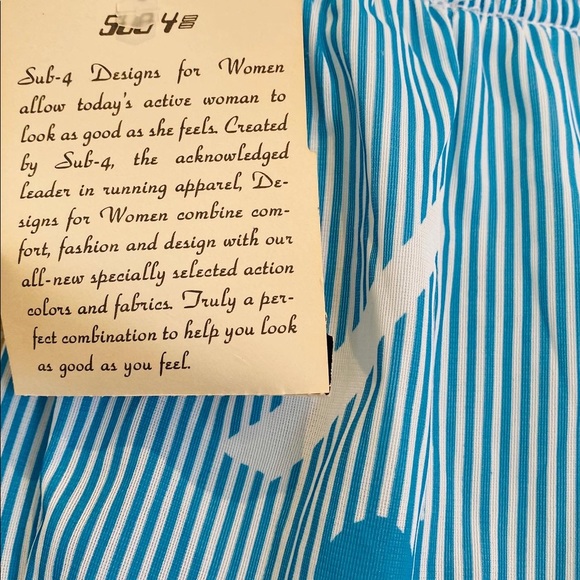 Sub 4
Sub-4 Designs for Women
allow today's active woman to
look as good as she feels. Created
by Sub-4, the acknowledged
leader in running apparel, De-
signs for Women combine com-
fort, fashion and design with our
all-new specially selected action
colors and fabrics. Truly a per-
fect combination to help you look
as good as you feel.